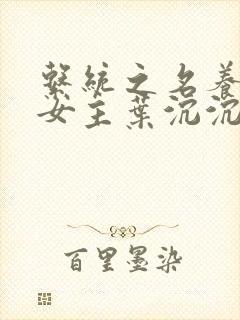 繫統之名養
女主葉沉沉
百里墨染